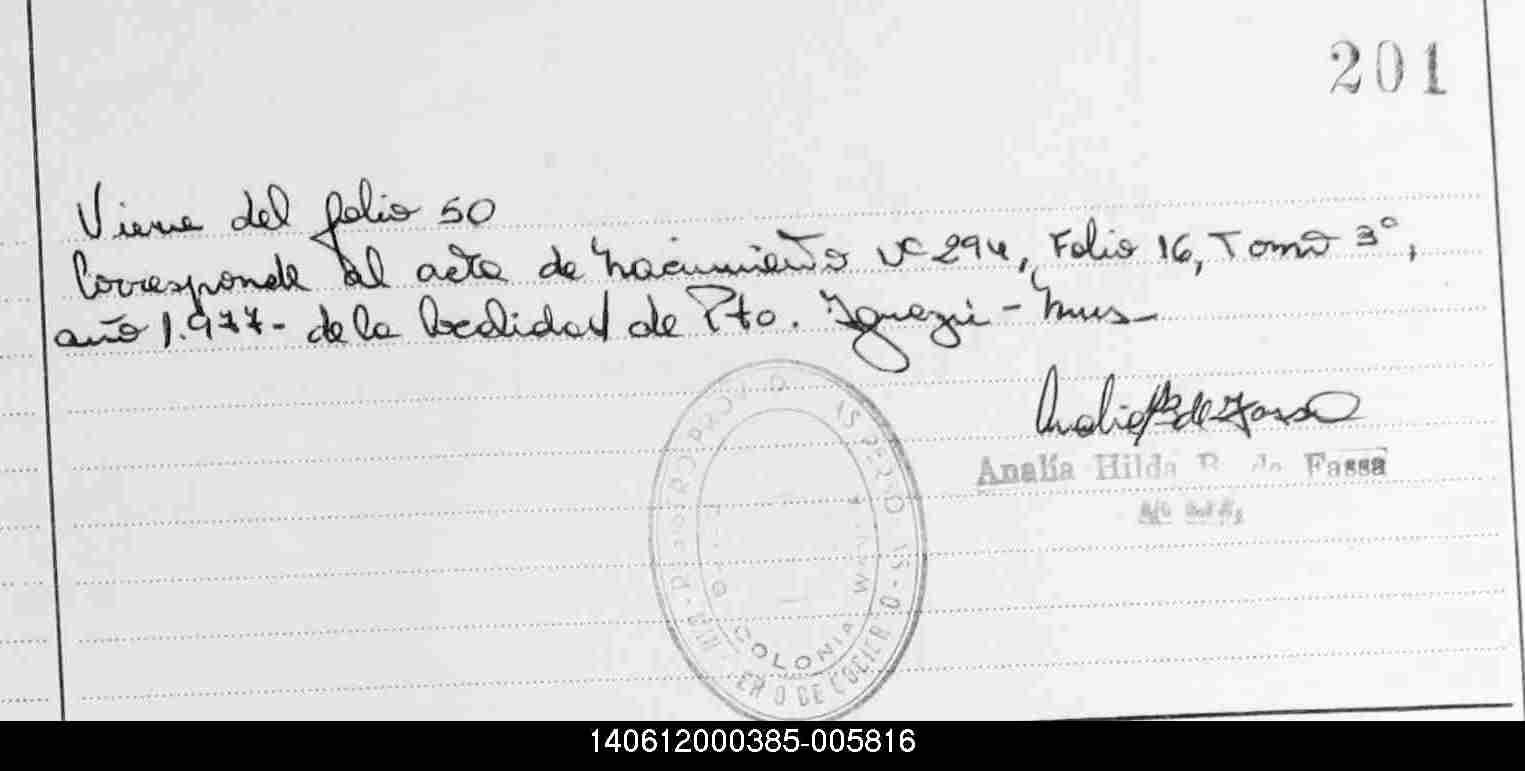 201
Viene del folio 50
Corresponde al acta de nacimiento Nº 294, Folio 16, Tomo 3º,
año 1.977- de la localidad de Pto. Iguazú - Mnes-
Analía Hilda B. de Fassa
COLONIA WANDA
140612000385-005816